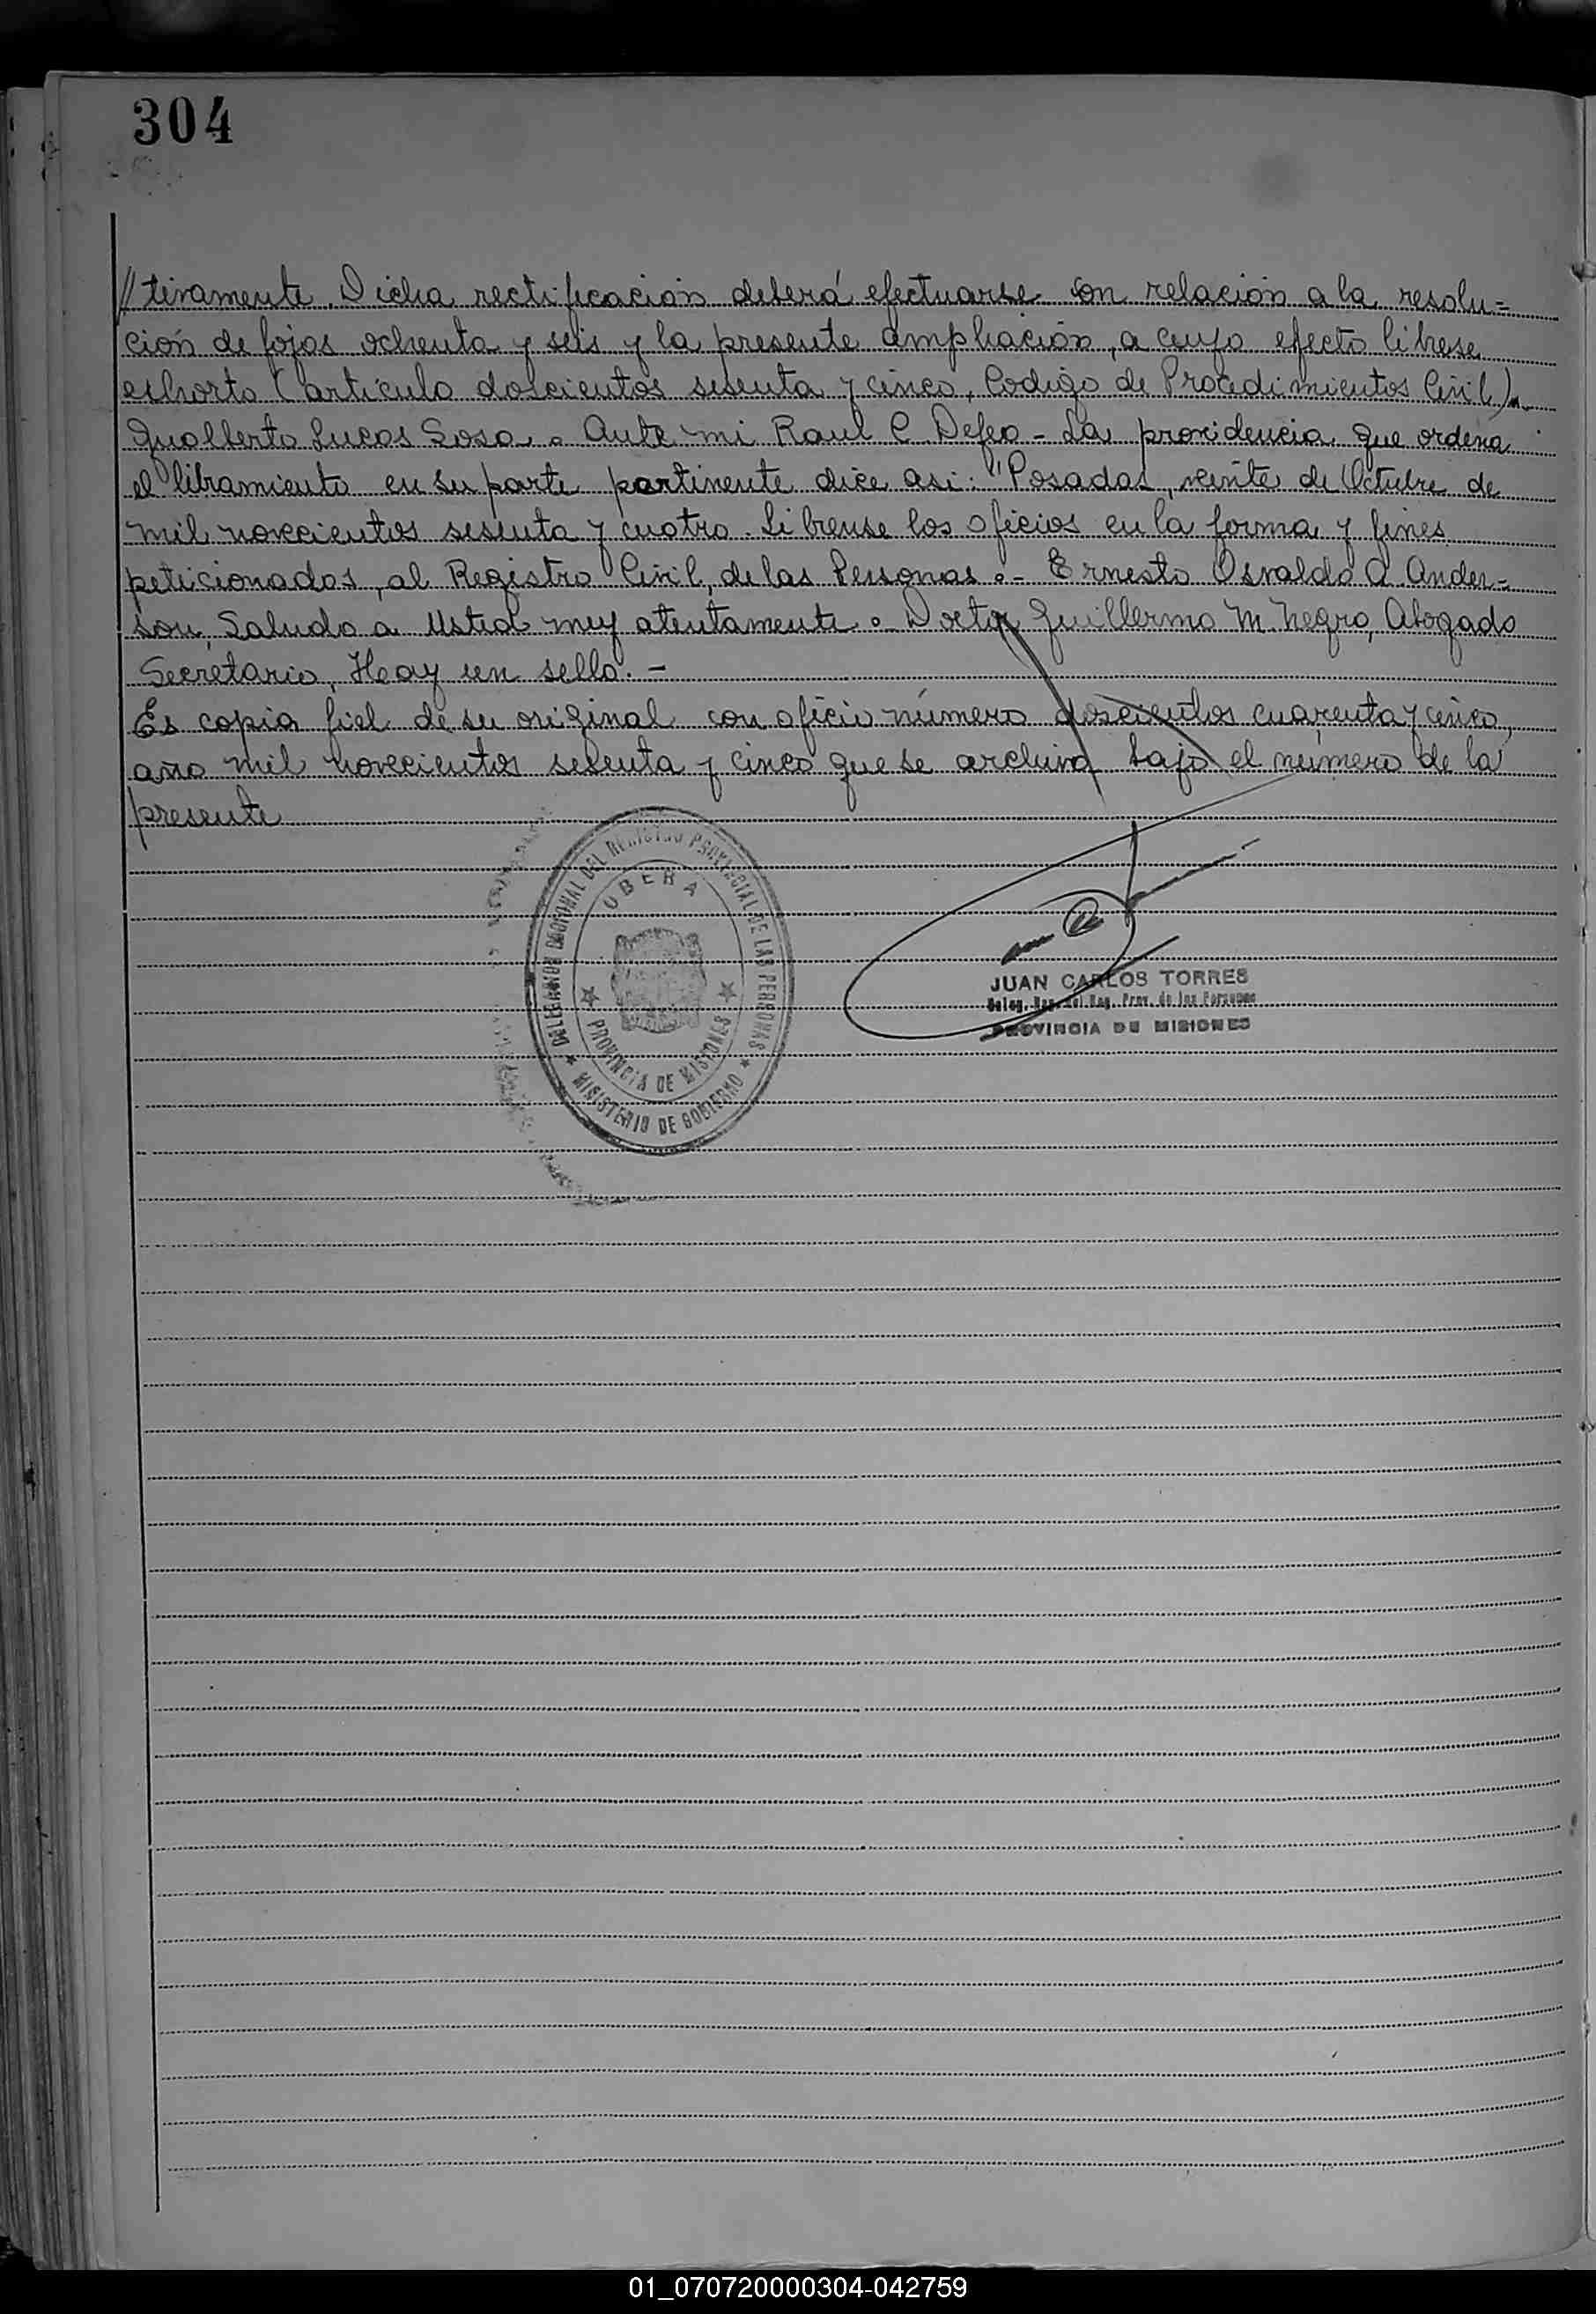 304
// tivamente. Dicha rectificación deberá efectuarse con relación a la resolu=
ción de fojas ochenta y seis y la presente ampliación, a cuyo efecto librese
exhorto (articulo doscientos sesenta y cinco, Codigo de Procedimientos Civil).
Gualberto Lucas Sosa. Ante mi Raul C Defeo - La providencia que ordena
el libramiento en su parte pertinente dice asi: "Posadas, veinte de Octubre de
mil novecientos sesenta y cuatro. Librense los oficios en la forma y fines
peticionados, al Registro Civil, de las Personas.- Ernesto Osvaldo A Ander=
son, Saludo a Usted muy atentamente. Doctor Guillermo M. Negro, Abogado
Secretario, Heay un sello. -
Es copia fiel de su original con oficio número doscientos cuarenta y cinco,
año mil novecientos sesenta y cinco que se archiva bajo el número de la
presente
DELEGACION REGIONAL DEL REGISTRO PROVINCIAL DE LAS PERSONAS
OBERA
PROVINCIA DE MISIONES
MINISTERIO DE GOBIERNO
JUAN CARLOS TORRES
Deleg. Reg. del Reg. Prov. de las Personas
PROVINCIA DE MISIONES
01_070720000304-042759